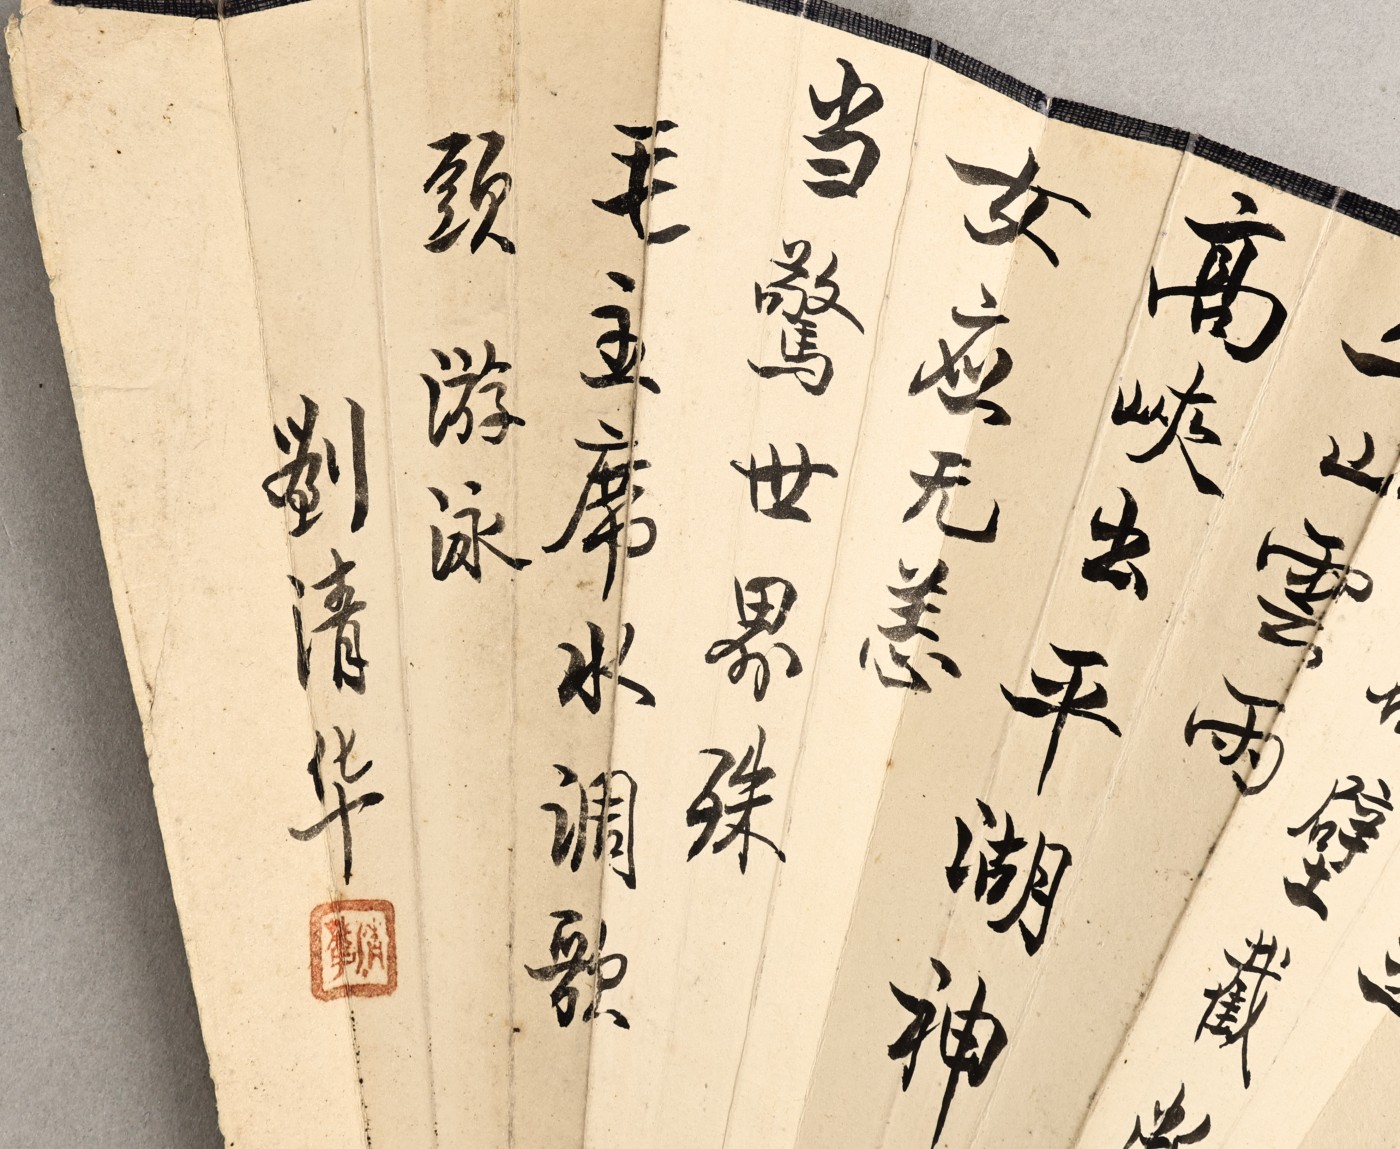 壁截
山雲雨
高峽出平湖神
女應无恙
当驚世界殊
毛主席水调歌
頭 游泳
劉清华
清華